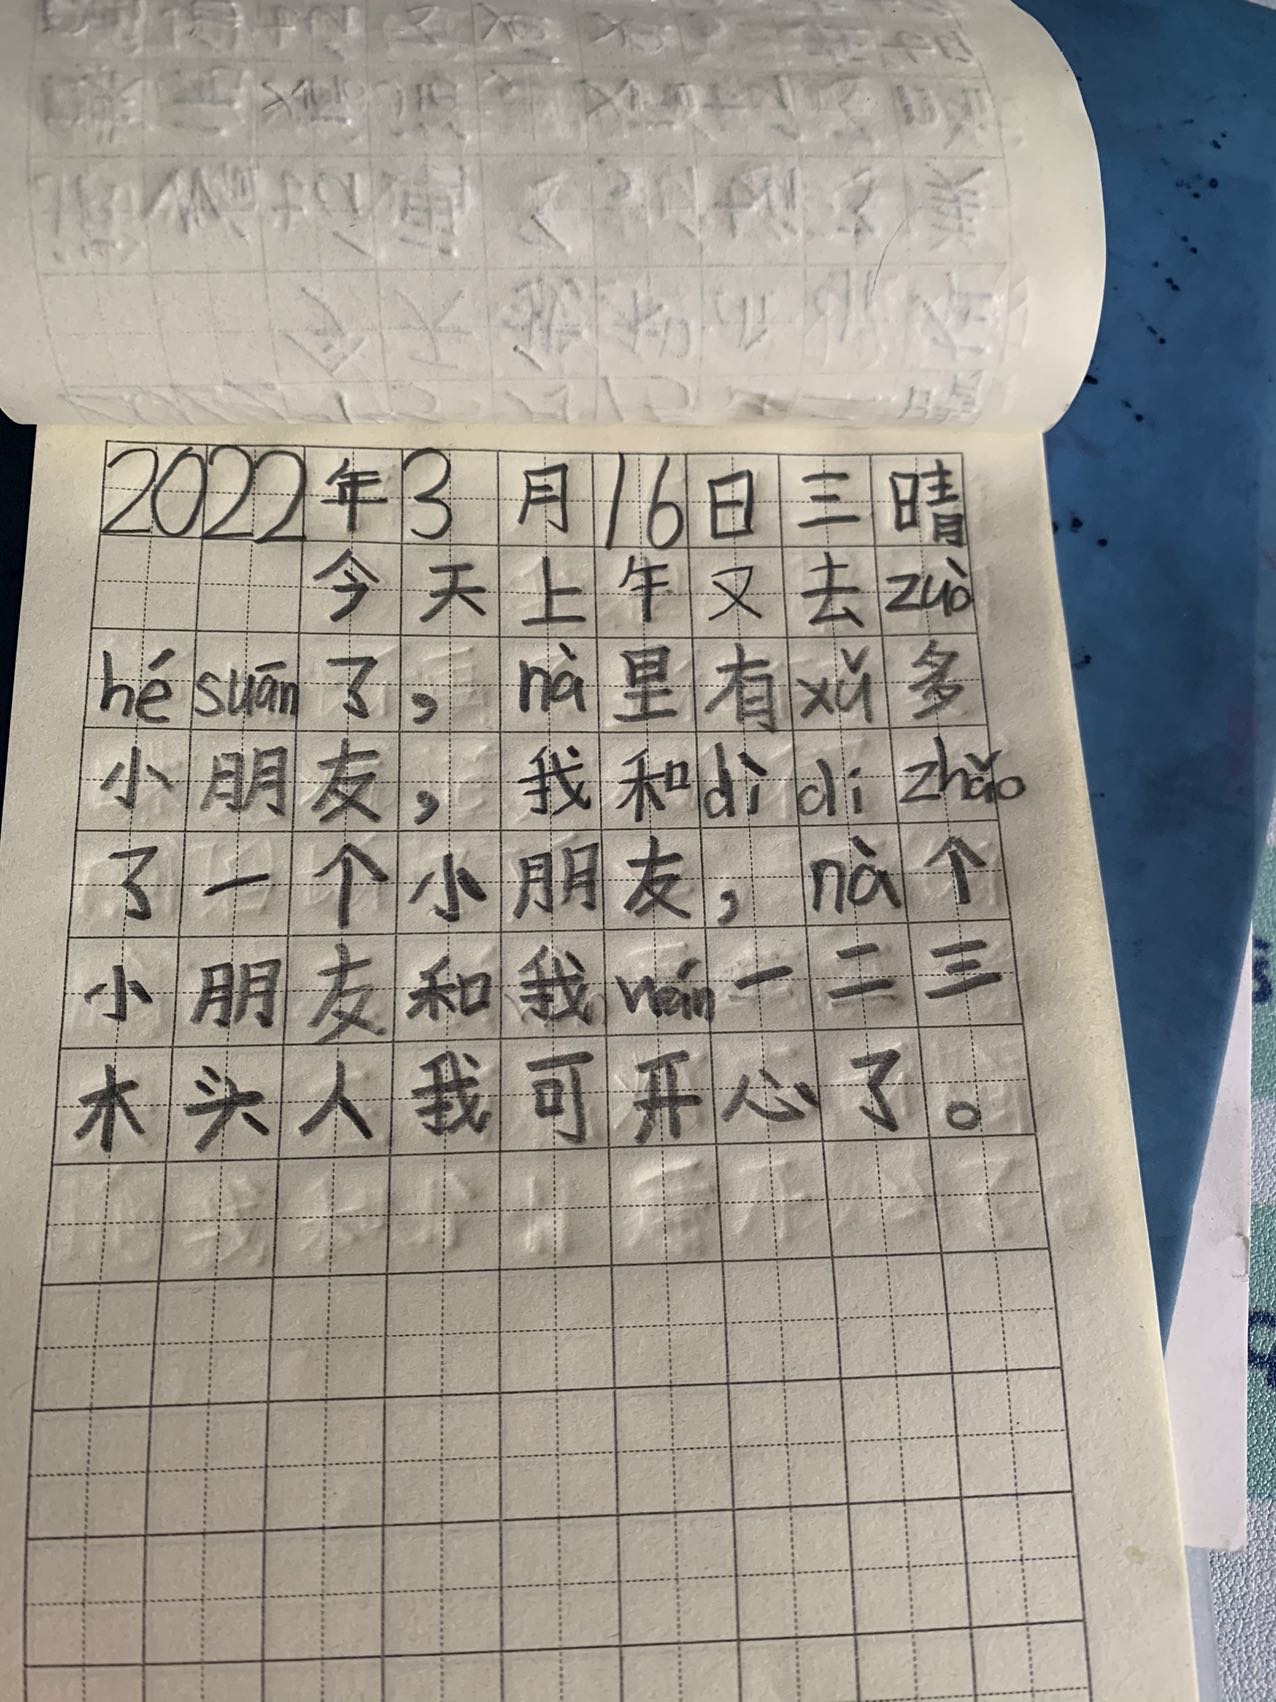 2022年3月16日三晴
今天上午又去zuò
hésuān了，nà里有xǔ多
小朋友，我和dìdizhǎo
了一个小朋友，nà个
小朋友和我wán一二三
木头人我可开心了。